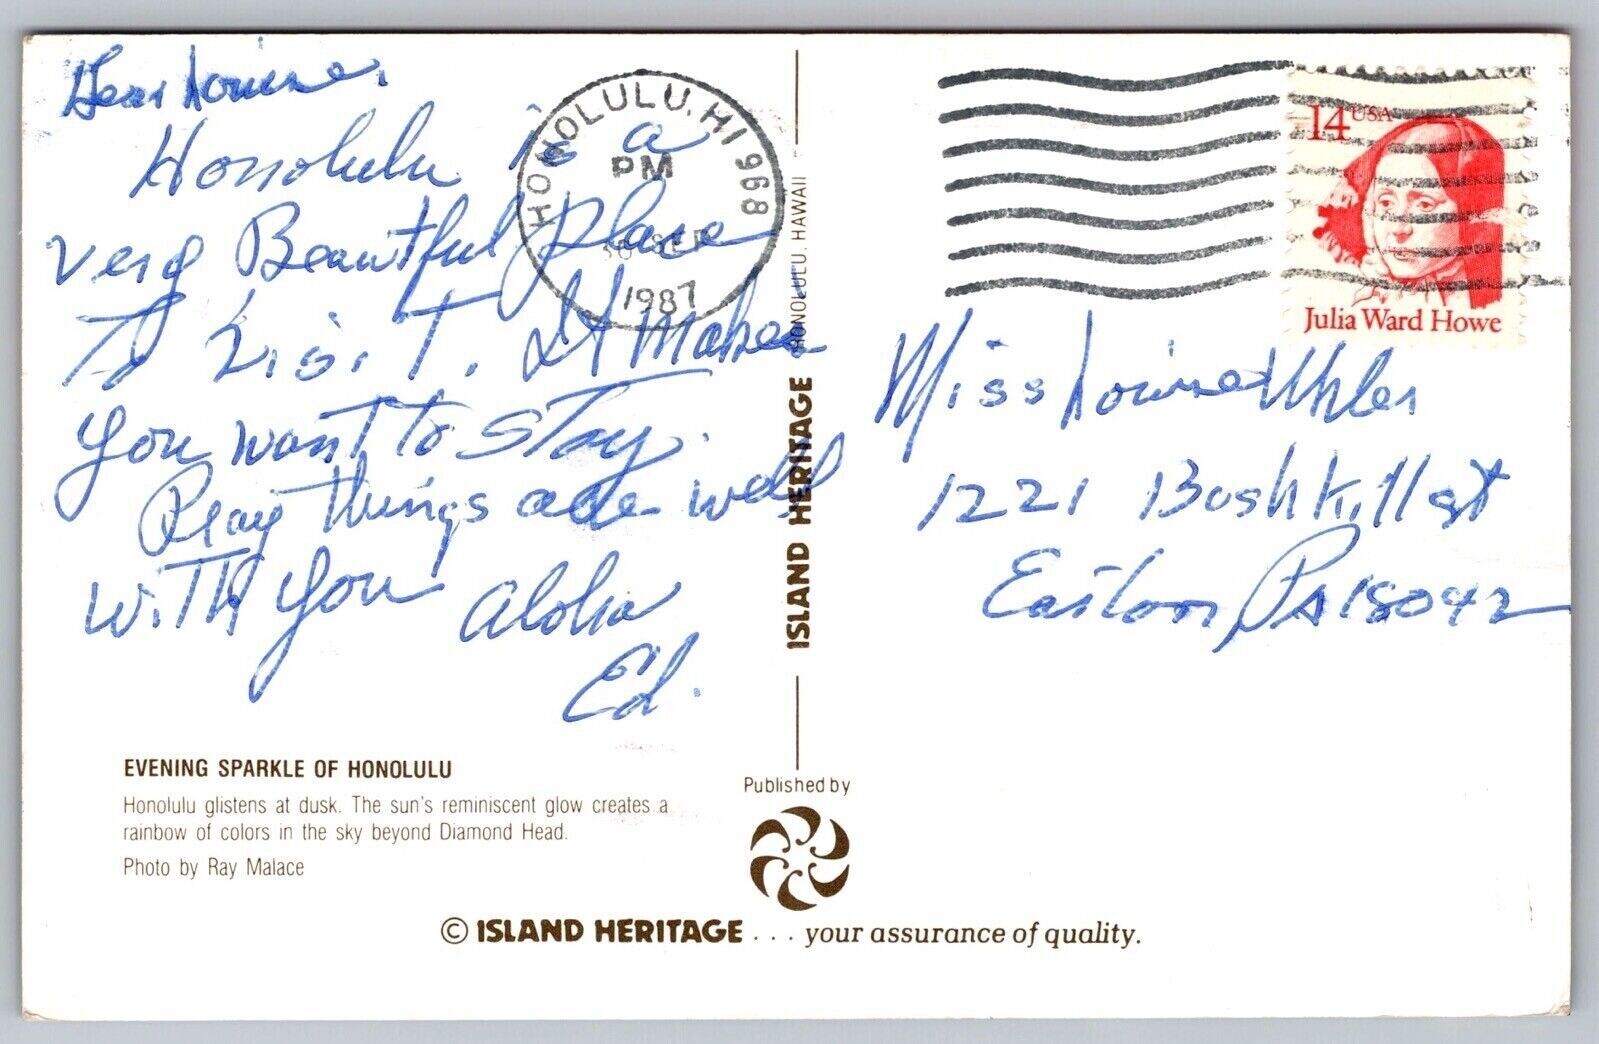 Dear Louise.
Honolulu is a
very Beautiful place
To Visit. It Makes
you want to STay.
Pray things are well
WiTH you Aloha
Ed.
EVENING SPARKLE OF HONOLULU
Honolulu glistens at dusk. The sun's reminiscent glow creates a
rainbow of colors in the sky beyond Diamond Head.
Photo by Ray Malace
HONOLULU, HI 968
PM
30 SEP
1987
HONOLULU, HAWAII
ISLAND HERITAGE
Published by
© ISLAND HERITAGE . . . your assurance of quality.
14 USA
Julia Ward Howe
Miss Louise Uhler
1221 Bushkill st
Easton PA 18042